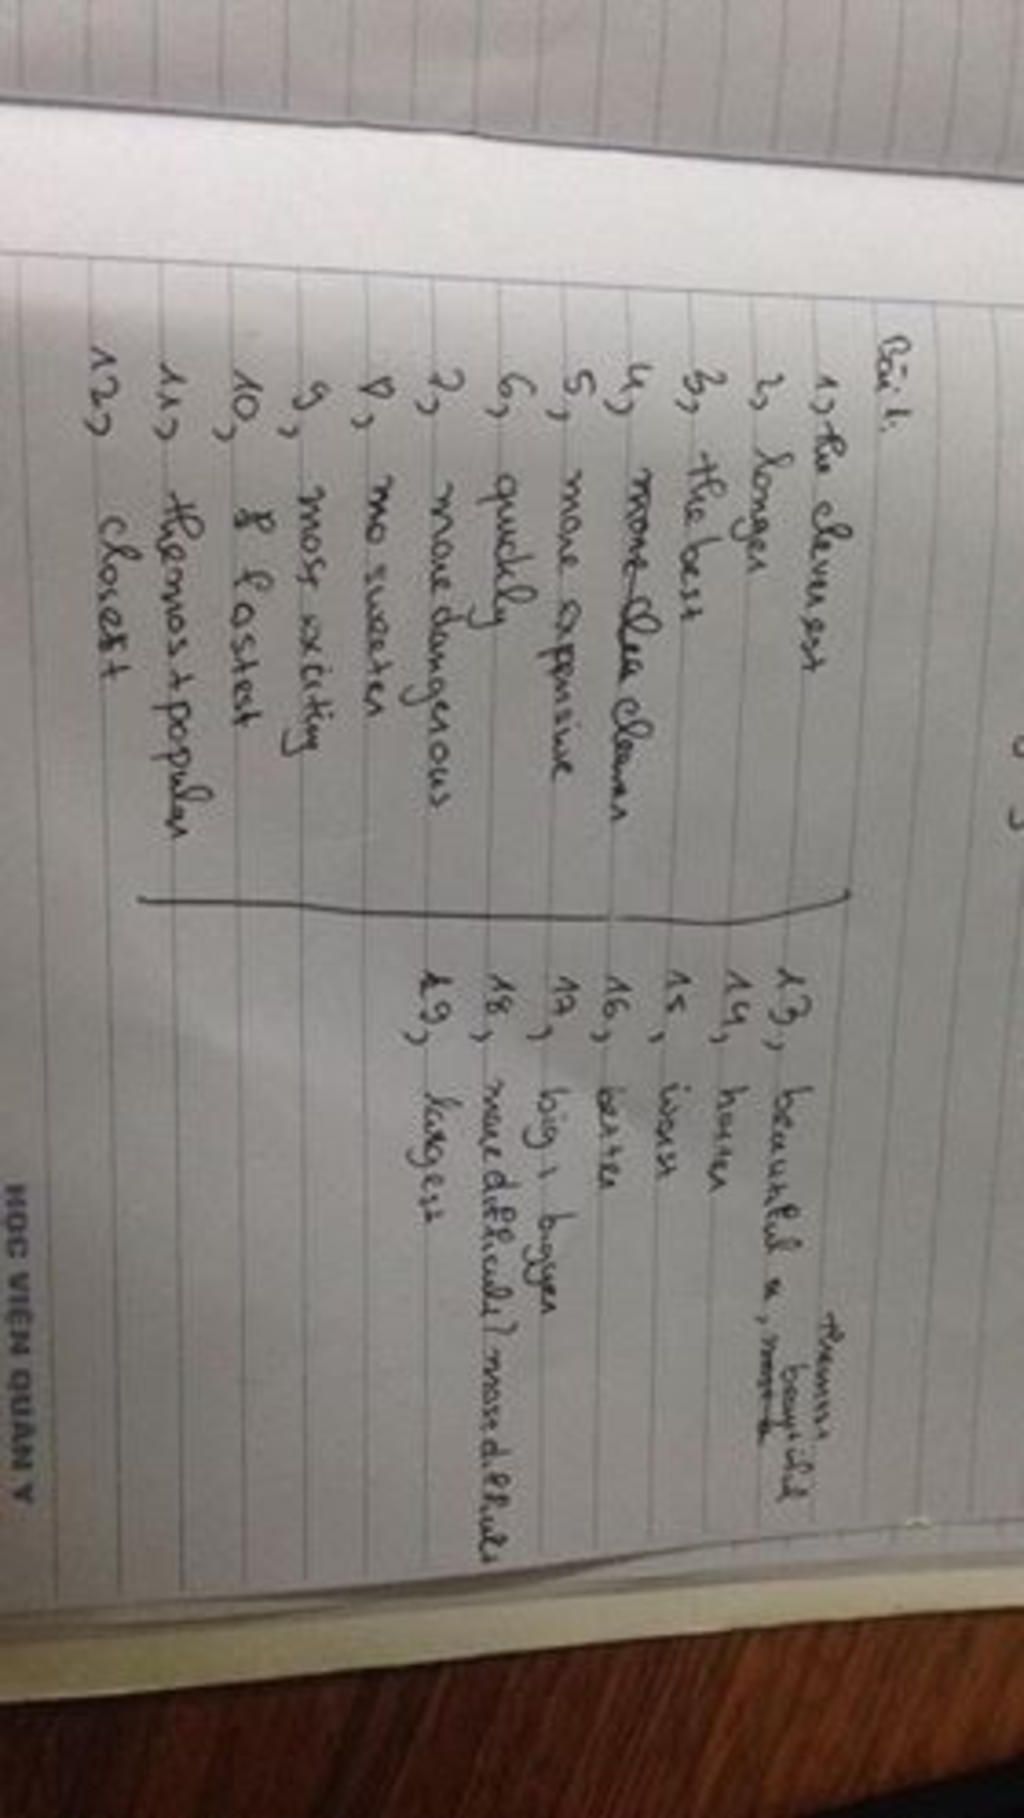 Bài 1.
1, the cleverest
2, longer
3, the best
4, more clea cleaner
5, more expensive
6, quickly
7, more dangerous
8, mo sweeter
9, most exciting
10, f fastest
11, the most popular
12, closest
the most
beautiful
13, beautiful
14, hotter
15, worst
16, better
17, big, bigger
18, more difficult? most difficult
19, largest
HỌC VIỆN QUÂN Y